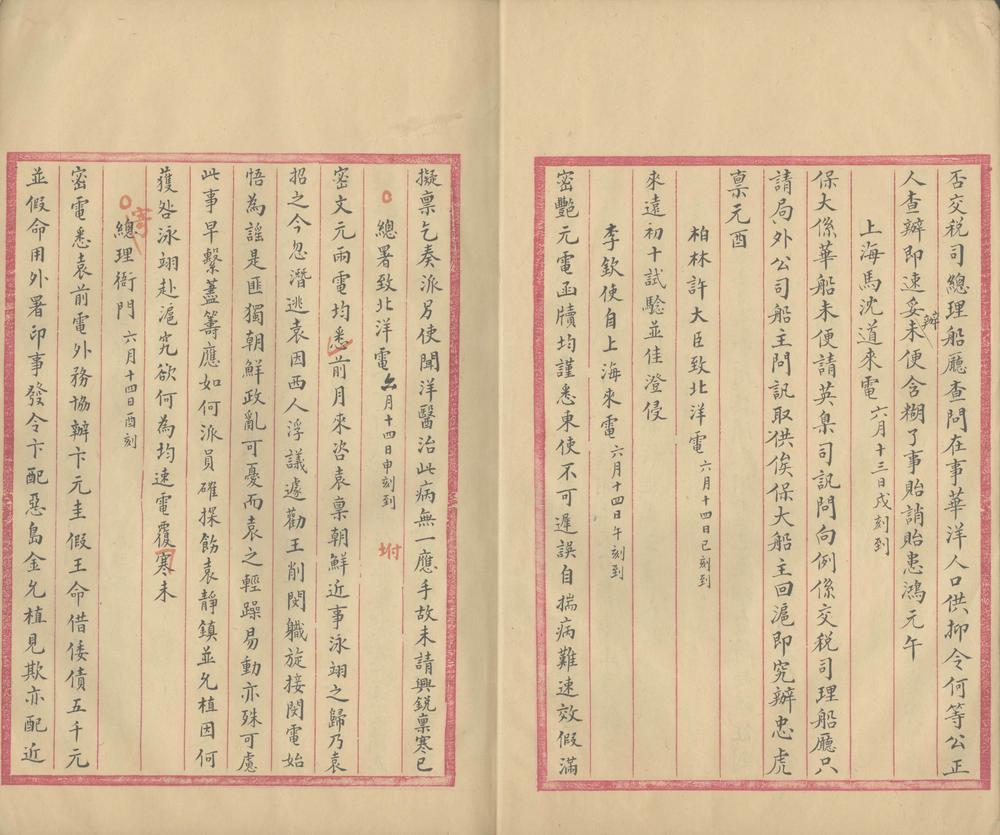 否交税司總理船廳查問在事華洋人口供抑令何等公正
人查辦即速妥辦未便含糊了事貽誚貽患鴻元午
上海馬沈道來電 六月十三日戍刻到
保大係華船未便請英臬司訊問向例係交税司理船廳只
請局外公司船主問訊取供俟保大船主回滬即究辦忠虎
禀元酉
柏林許大臣致北洋電 六月十四日巳刻到
來遠初十試驗並佳澄侵
李欽使自上海來電 六月十四日午刻到
密艷元電函牘均謹悉東使不可遲誤自揣病難速效假滿
擬禀乞奏派另使聞洋醫治此病無一應手故未請興銳禀寒巳
總署致北洋電 六月十四日申刻到 坿
密文元兩電均悉前月來咨袁禀朝鮮近事泳翊之歸乃袁
招之今忽潛逃袁因西人浮議遽勸王削閔軄旋接閔電始
悟為謡是匪獨朝鮮政亂可憂而袁之輕躁易動亦殊可慮
此事早繫藎籌應如何派員確探飭袁靜鎮並允植因何
獲咎泳翊赴滬究欲何為均速電覆寒未
寄總理衙門 六月十四日酉刻
密電悉袁前電外務協辦卞元圭假王命借倭債五千元
並假命用外署印事發令卞配惡島金允植見欺亦配近